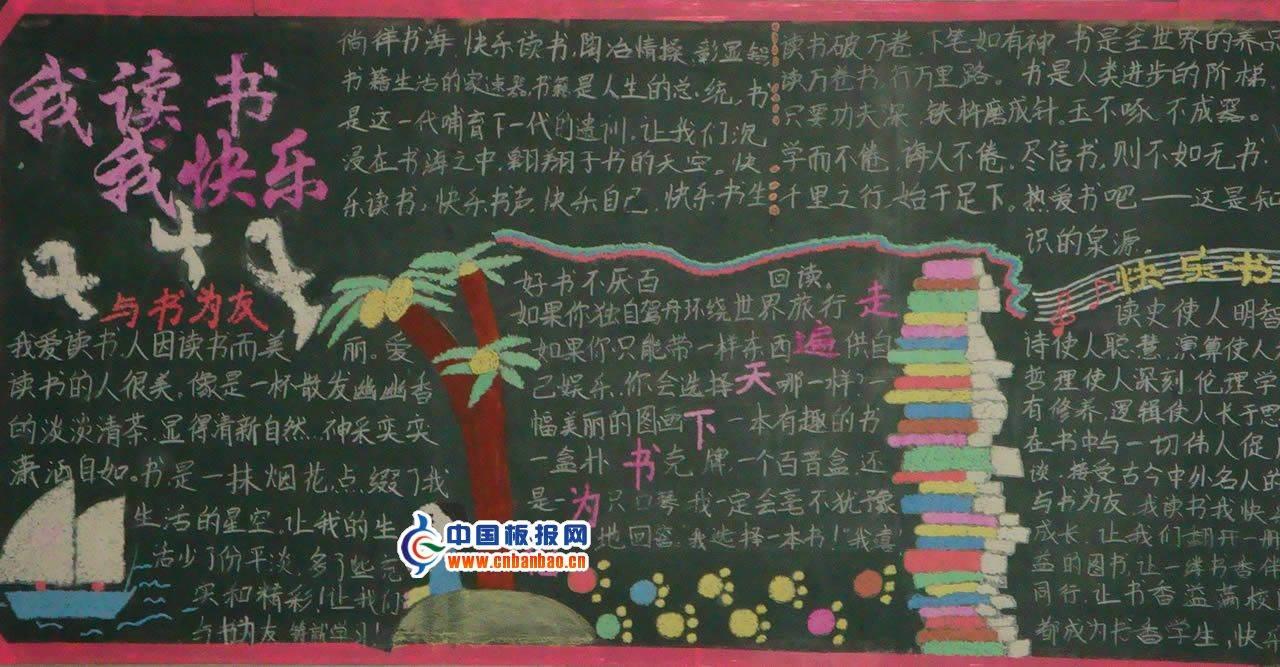 我读书
我快乐
徜徉书海,快乐读书,陶冶情操,彰显
书籍生活的家速器,书籍是人生的总统,书
是这一代哺育下一代的遗训,让我们沉
浸在书海之中,翱翔于书的天空。快
乐读书,快乐书声,快乐自己,快乐书生
读书破万卷,下笔如有神,书是全世界的养品
读万卷书,行万里路。书是人类进步的阶梯,
只要功夫深,铁杵磨成针。玉不啄,不成器。
学而不倦,诲人不倦,尽信书,则不如无书,
千里之行,始于足下。热爱书吧——这是知
识的泉源。
与书为友
我爱读书,人因读书而美丽。爱
读书的人很美,像是一杯散发幽幽香
的淡淡清茶,显得清新自然,神采奕奕
潇洒自如。书是一抹烟花,点缀了我
生活的星空,让我的生
活少了份平淡,多了些充
实和精彩!让我们
与书为友,学习!
好书不厌百回读。
如果你独自驾舟环绕世界旅行
如果你只能带一样东西供自
己娱乐,你会选择哪一样?一
幅美丽的图画,一本有趣的书
一盒扑克牌,一个百音盒,还
是一只口琴,我一定会毫不犹豫
地回答,我选择一本书!我
走遍天下书为
快乐书
读史使人明智
诗使人聪慧,演算使人
哲理使人深刻,伦理学
有修养,逻辑使人长于思
在书中与一切伟人促
谈,接受古今中外名人的
与书为友,我读书我快
成长,让我们翻开一册
益的图书,让一缕书香伴
同行,让书香益满校
都成为书香学生,快乐
中国板报网
www.cnbanbao.cn